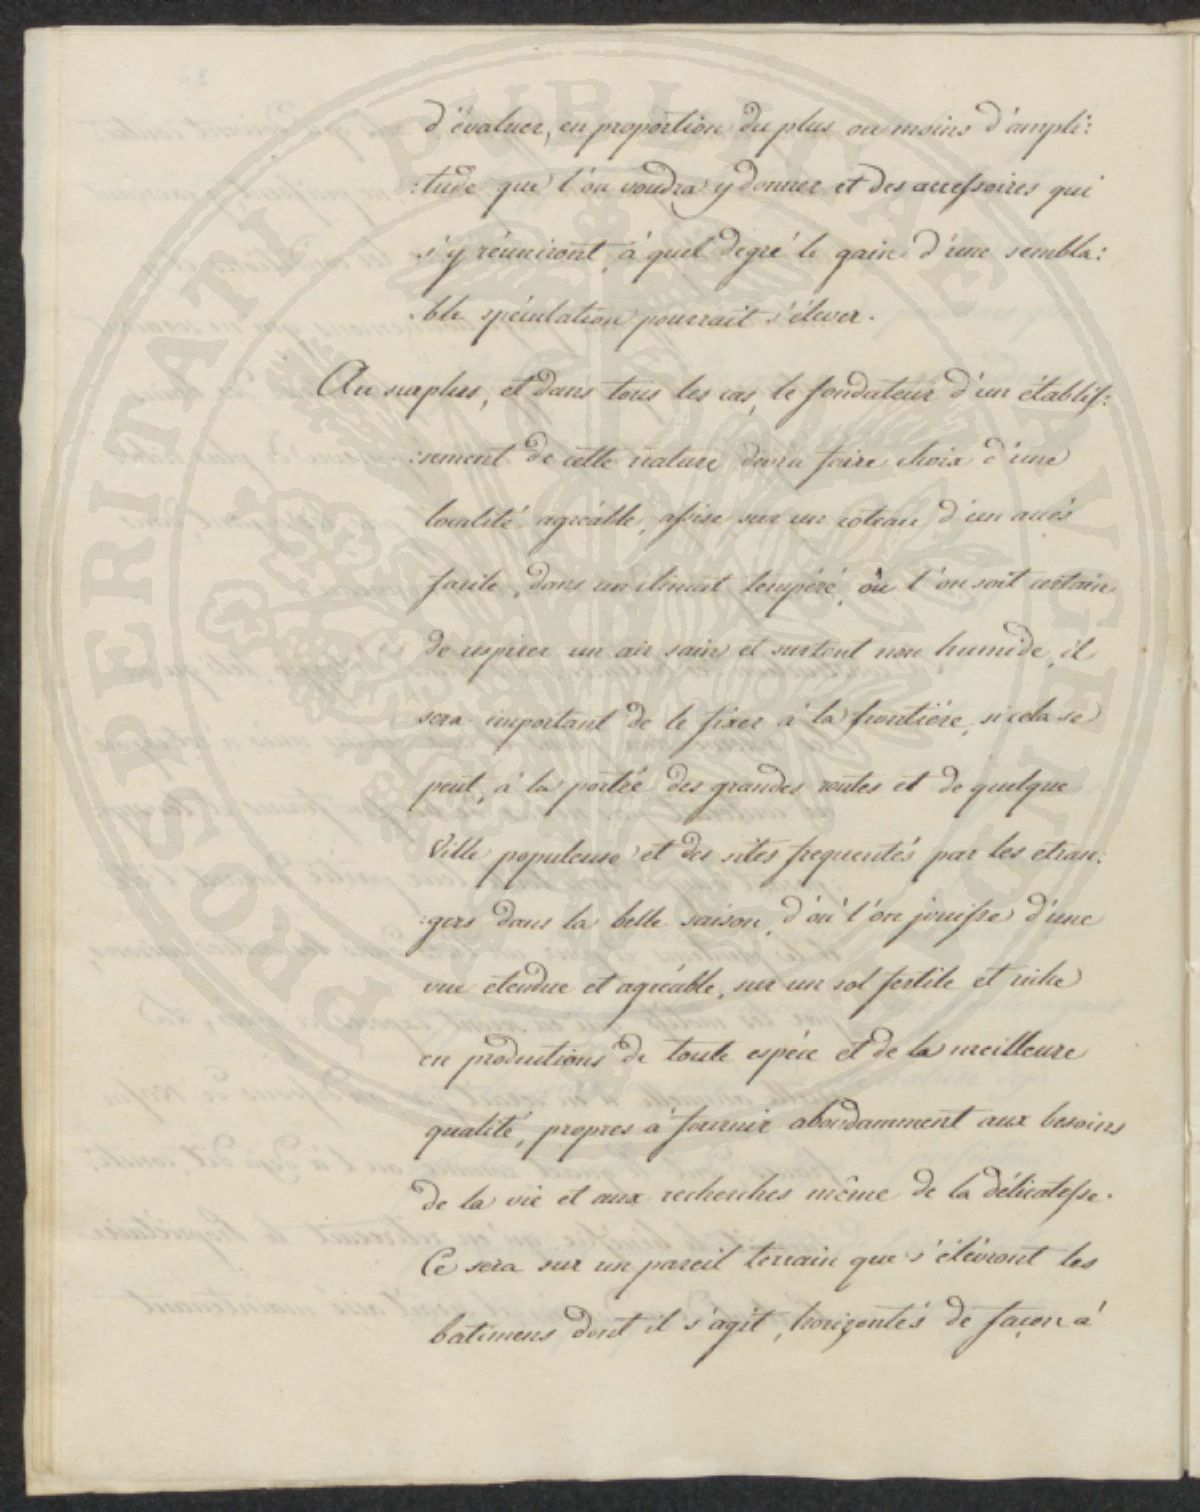 d'évaluer, en proportion du plus ou moins d'ampli:
:tude que l'on voudra y donner et des accessoires qui
s'y réuniront, à quel degré le gain d'une sembla:
:ble spéculation pourrait s'élever.
Au surplus, et dans tous les cas, le fondateur d'un établis:
:sement de cette nature devra faire choix d'une
localité agréable, assise sur un coteau, d'un accés
facile, dans un climat tempéré, où l'on soit certain
de respirer un air sain et surtout non humide, il
sera important de le fixer à la frontière, si cela se
peut, à la portée des grandes routes et de quelque
Ville populeuse et des sites frequentés par les etran:
:gers dans la belle saison, d'où l'on jouisse d'une
vue etendue et agréable, sur un sol fertile et riche
en productions de toute espéce et de la meilleure
qualité, propres à fournir abondamment aux besoins
de la vie et aux recherches même de la délicatesse.
Ce sera sur un pareil terrain que s'élévront les
batimens dont il s'agit, horizontés de façon à
PROSPERITATI PUBLICAE